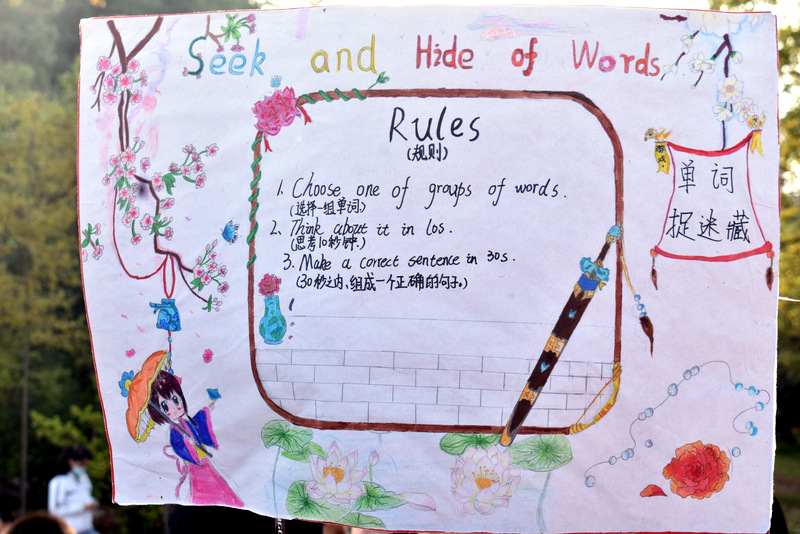 Seek and Hide of Words
Rules
(规则)
1. Choose one of groups of words.
(选择一组单词)
2. Think about it in 10s.
(思考10秒钟.)
3. Make a corect sentence in 30s.
(30秒之内、组成一个正确的句子。)
单词
捉迷藏